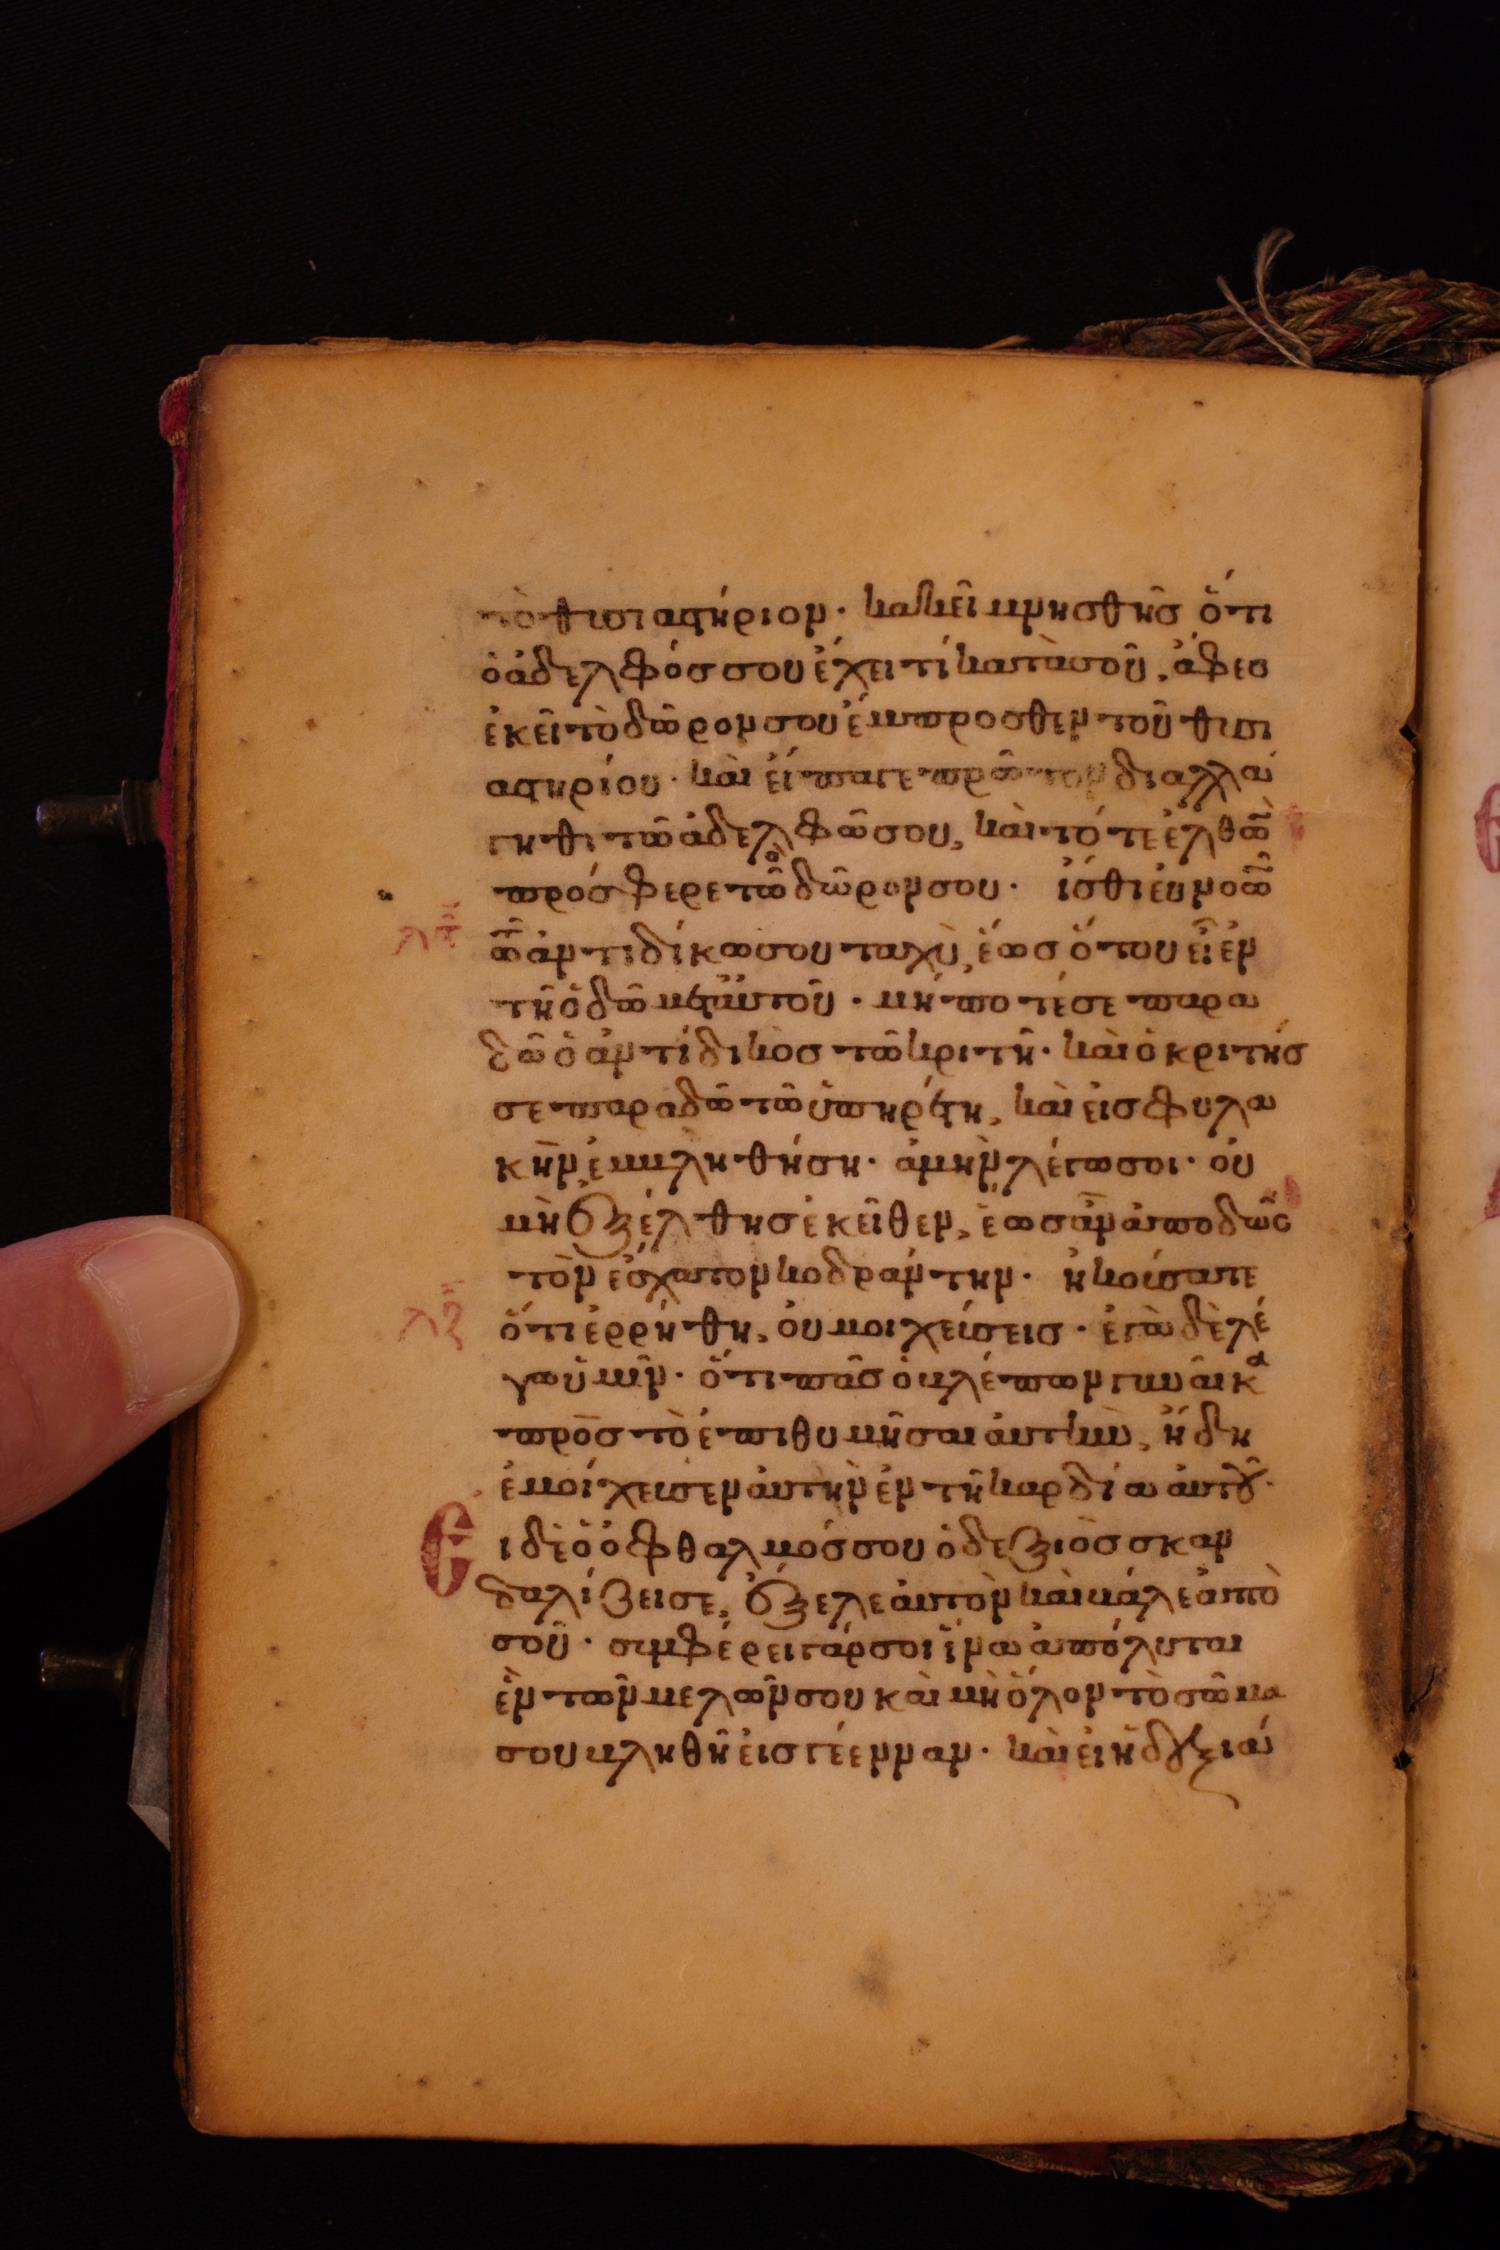 τὸ θυσιαστήριον· κακεῖ μνησθῆς ὅτι
ὁ ἀδελφόσ σου ἔχει τί κατὰ σοῦ, ἄφεσ
ἐκεῖ τὸ δῶρον σου ἔμπροσθεν τοῦ θυσι
αστηρίου· καὶ πρῶτον διαλλά
γηθι τῶ ἀδελφῶ σου, καὶ τότε ἐλθὼν
πρόσφερε τὸ δῶρον σου· ἴσθι ἐυνοῶν
τῶ ἀντιδίκω σου ταχὺ, ἕωσ ὅτου εἶ ἐν
τῆ ὁδῶ μετ αὐτοῦ· μή ποτέ σε παρα
δῶ ὁ ἀντίδικὸσ τῶ κριτῆ· καὶ ὁ κριτήσ
σε παραδῶ τῶ ὑπηρέτη, καὶ εἰσ φυλα
κὴν βληθήση· ἀμὴν λέγω σοι· οὐ
μὴ ἐξέλθησ ἐκεῖθεν, ἕωσ ἂν ἀποδῶσ
τὸν ἔσχατον κοδράντην· ἠκούσατε
ὅτι ἐρρήθη, οὐ μοιχεύσεισ· ἐγὼ δὲ λέ
γω ὑμῖν· ὅτι πᾶσ ὁ βλέπων γυναῖκα
πρὸσ τὸ ἐπιθυμῆσαι ἀυτὴν, ἤδη
ἐμοίχευσεν ἀυτὴν ἐν τῆ καρδία ἀυτοῦ·
Ει δὲ ὁ ὀφθαλμόσ σου ὁ δεξιὸσ σκαν
δαλίζει σε, ἔξελε ἀυτὸν καὶ βάλε ἀπὸ
σοῦ· συμφέρει γάρ σοι ἵνα ἀπόληται
ἓν τῶν μελῶν σου καὶ μὴ ὅλον τὸ σῶμα
σου βληθῆ εἰσ γέενναν· καὶ εἰ ἡ δεξιά